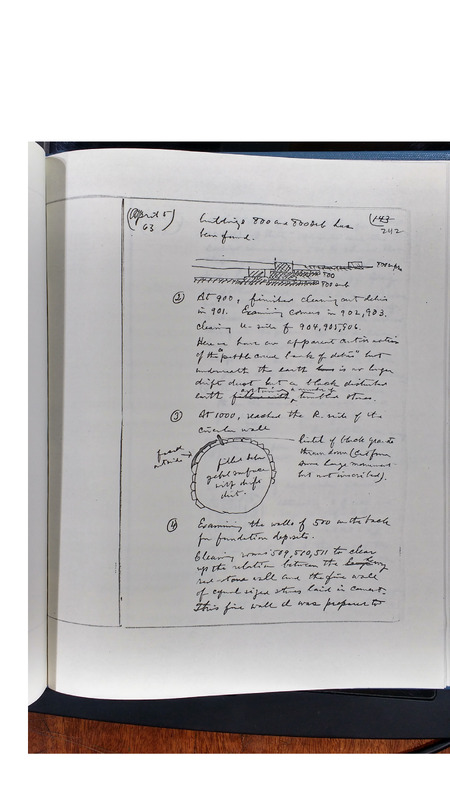 April 5
63
143
242
building 800 and 800 sub has
been found.
800
800 sub
② At 900, finished clearing out debris
in 901. Examining corners in 902, 903.
clearing the side of 904, 905, 906.
Here we have an apparent continuation
of the "pebble crust bank of debris" but
underneath the earth is no longer
drift dust but a black disturbed
earth containing a number of tumbled stones.
③ At 1000, reached the R. side of the
circular wall
faced
outside
filled below
gebel surface
with drift
dirt.
Lintel of black granite
thrown down (Cut from
some large monument
but not inscribed).
④ Examining the walls of 500 on the back
for foundation deposits.
Clearing rooms 509, 510, 511 to clear
up the relation between the
red stone wall and the fine wall
of equal sized stones laid in cement.
This fine wall it was proposed to